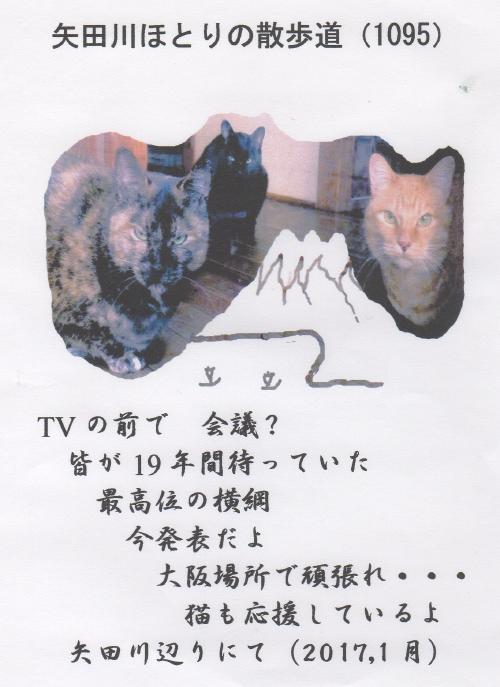 矢田川ほとりの散歩道（1095）
TVの前で　会議？
皆が19年間待っていた
最高位の横綱
今発表だよ
大阪場所で頑張れ・・・
猫も応援しているよ
矢田川辺りにて（2017,1月）